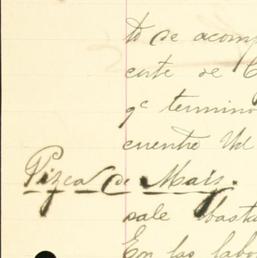 to de acomp
corte de C
qe termino
cuentre Ud
Pizca de Mais.
sale basta
En las labo